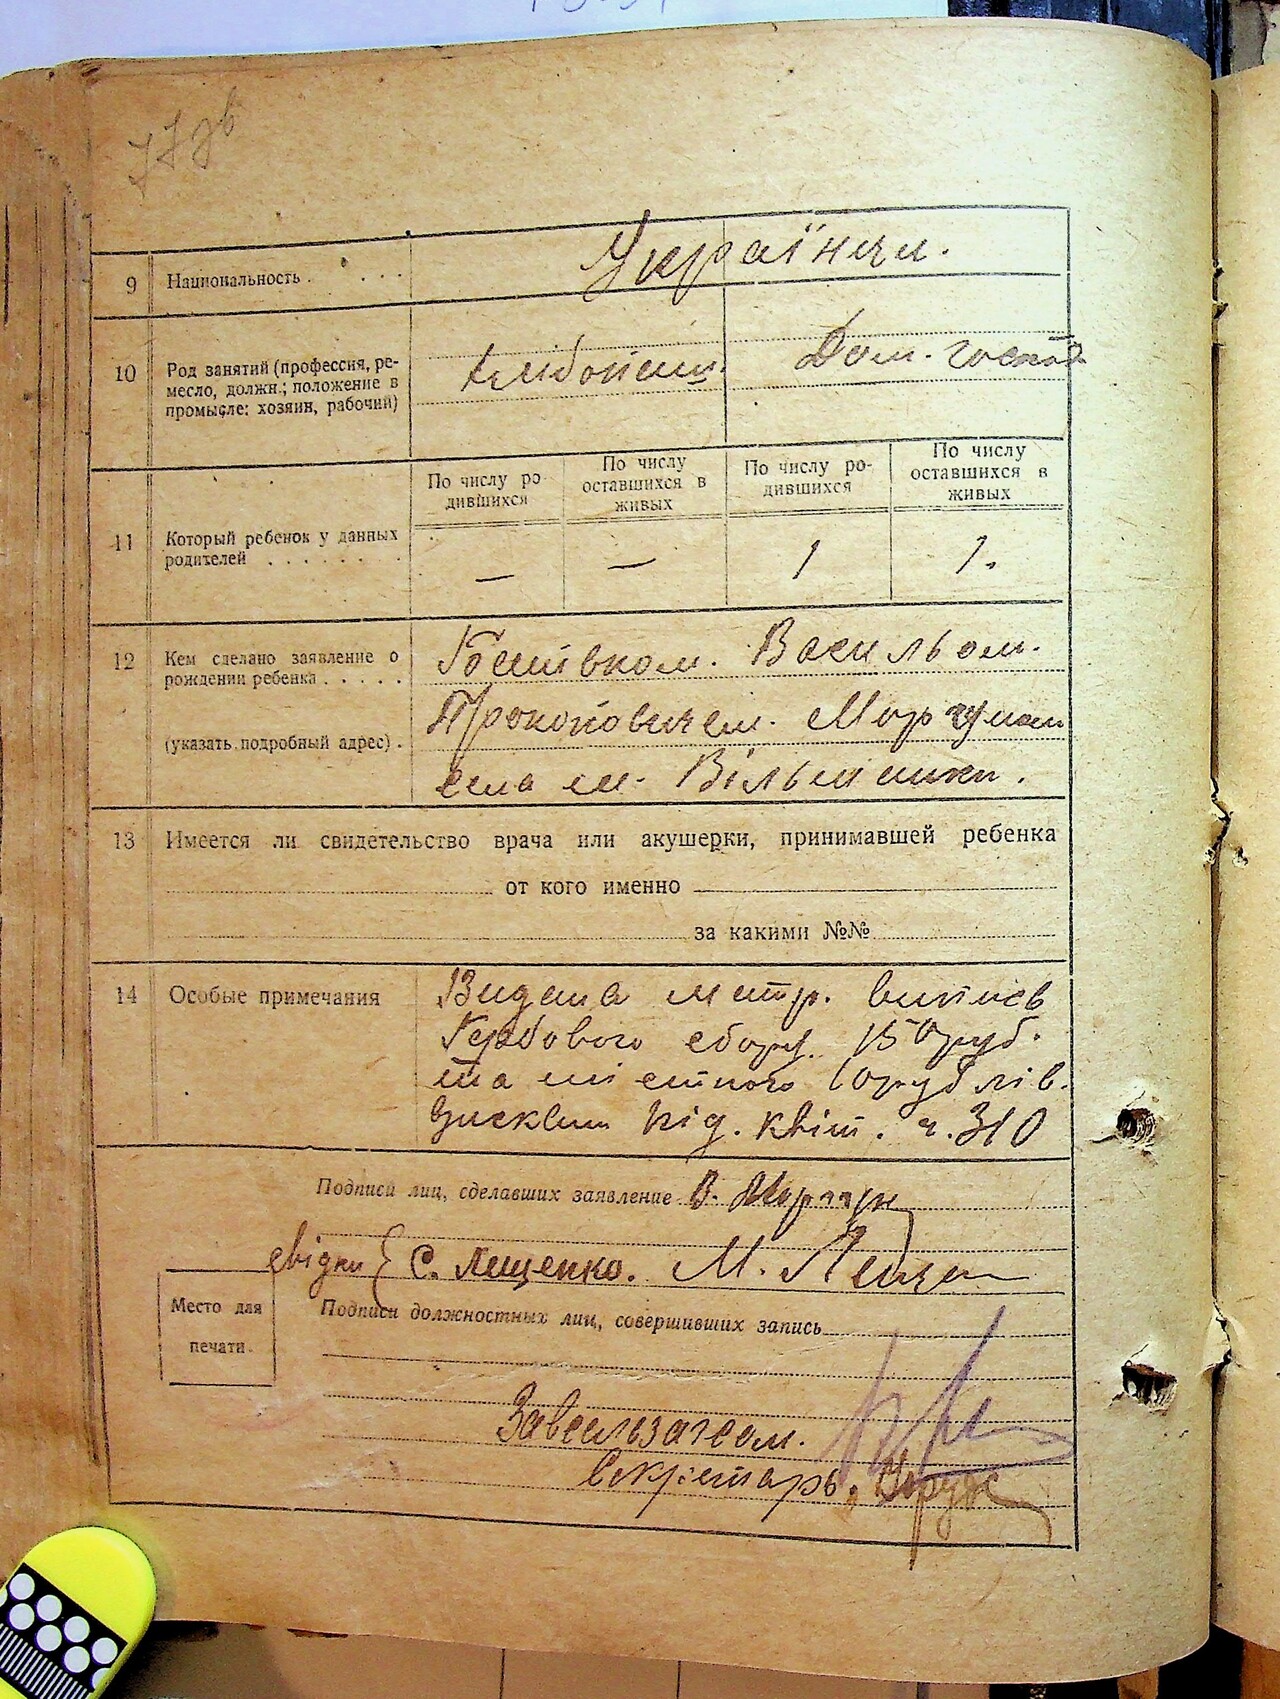 77 зв
9 Национальность . . . . Українци.
10 Род занятий (профессия, ре-
месло, должн.; положение в
промысле: хозяин, рабочий)
Хлібопаш. Дом. господ
По числу ро-
дившихся
По числу
оставшихся в
живых
По числу ро-
дившихся
По числу
оставшихся в
живых
11 Который ребенок у данных
родителей . . . . . . .
— — 1 1.
12 Кем сделано заявление о
рождении ребенка . . . . .
(указать подробный адрес) .
Батьком. Васильом.
Прокоповичем. Моргуном
села м. Вільшанки.
13 Имеется ли свидетельство врача или акушерки, принимавшей ребенка
от кого именно
за какими №№
14 Особые примечания
Видана метр. випись
Гербового сбору 150 руб.
та містного 60 рублів.
Зискано під. квіт. ч. 310
Подписи лиц, сделавших заявление В. Моргун
свідки { С. Лещенко. М.
Место для
печати.
Подписи должностных лиц, совершивших запись
Завсільзагсом.
Секретарь.